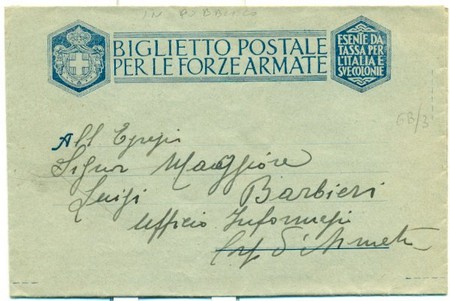 BIGLIETTO POSTALE
PER LE FORZE ARMATE
ESENTE DA
TASSA PER
L'ITALIA E
SVE COLONIE
All Egregio
Signor Maggiore
Luigi Barbieri
Ufficio Informazi
Corpo d'Armata